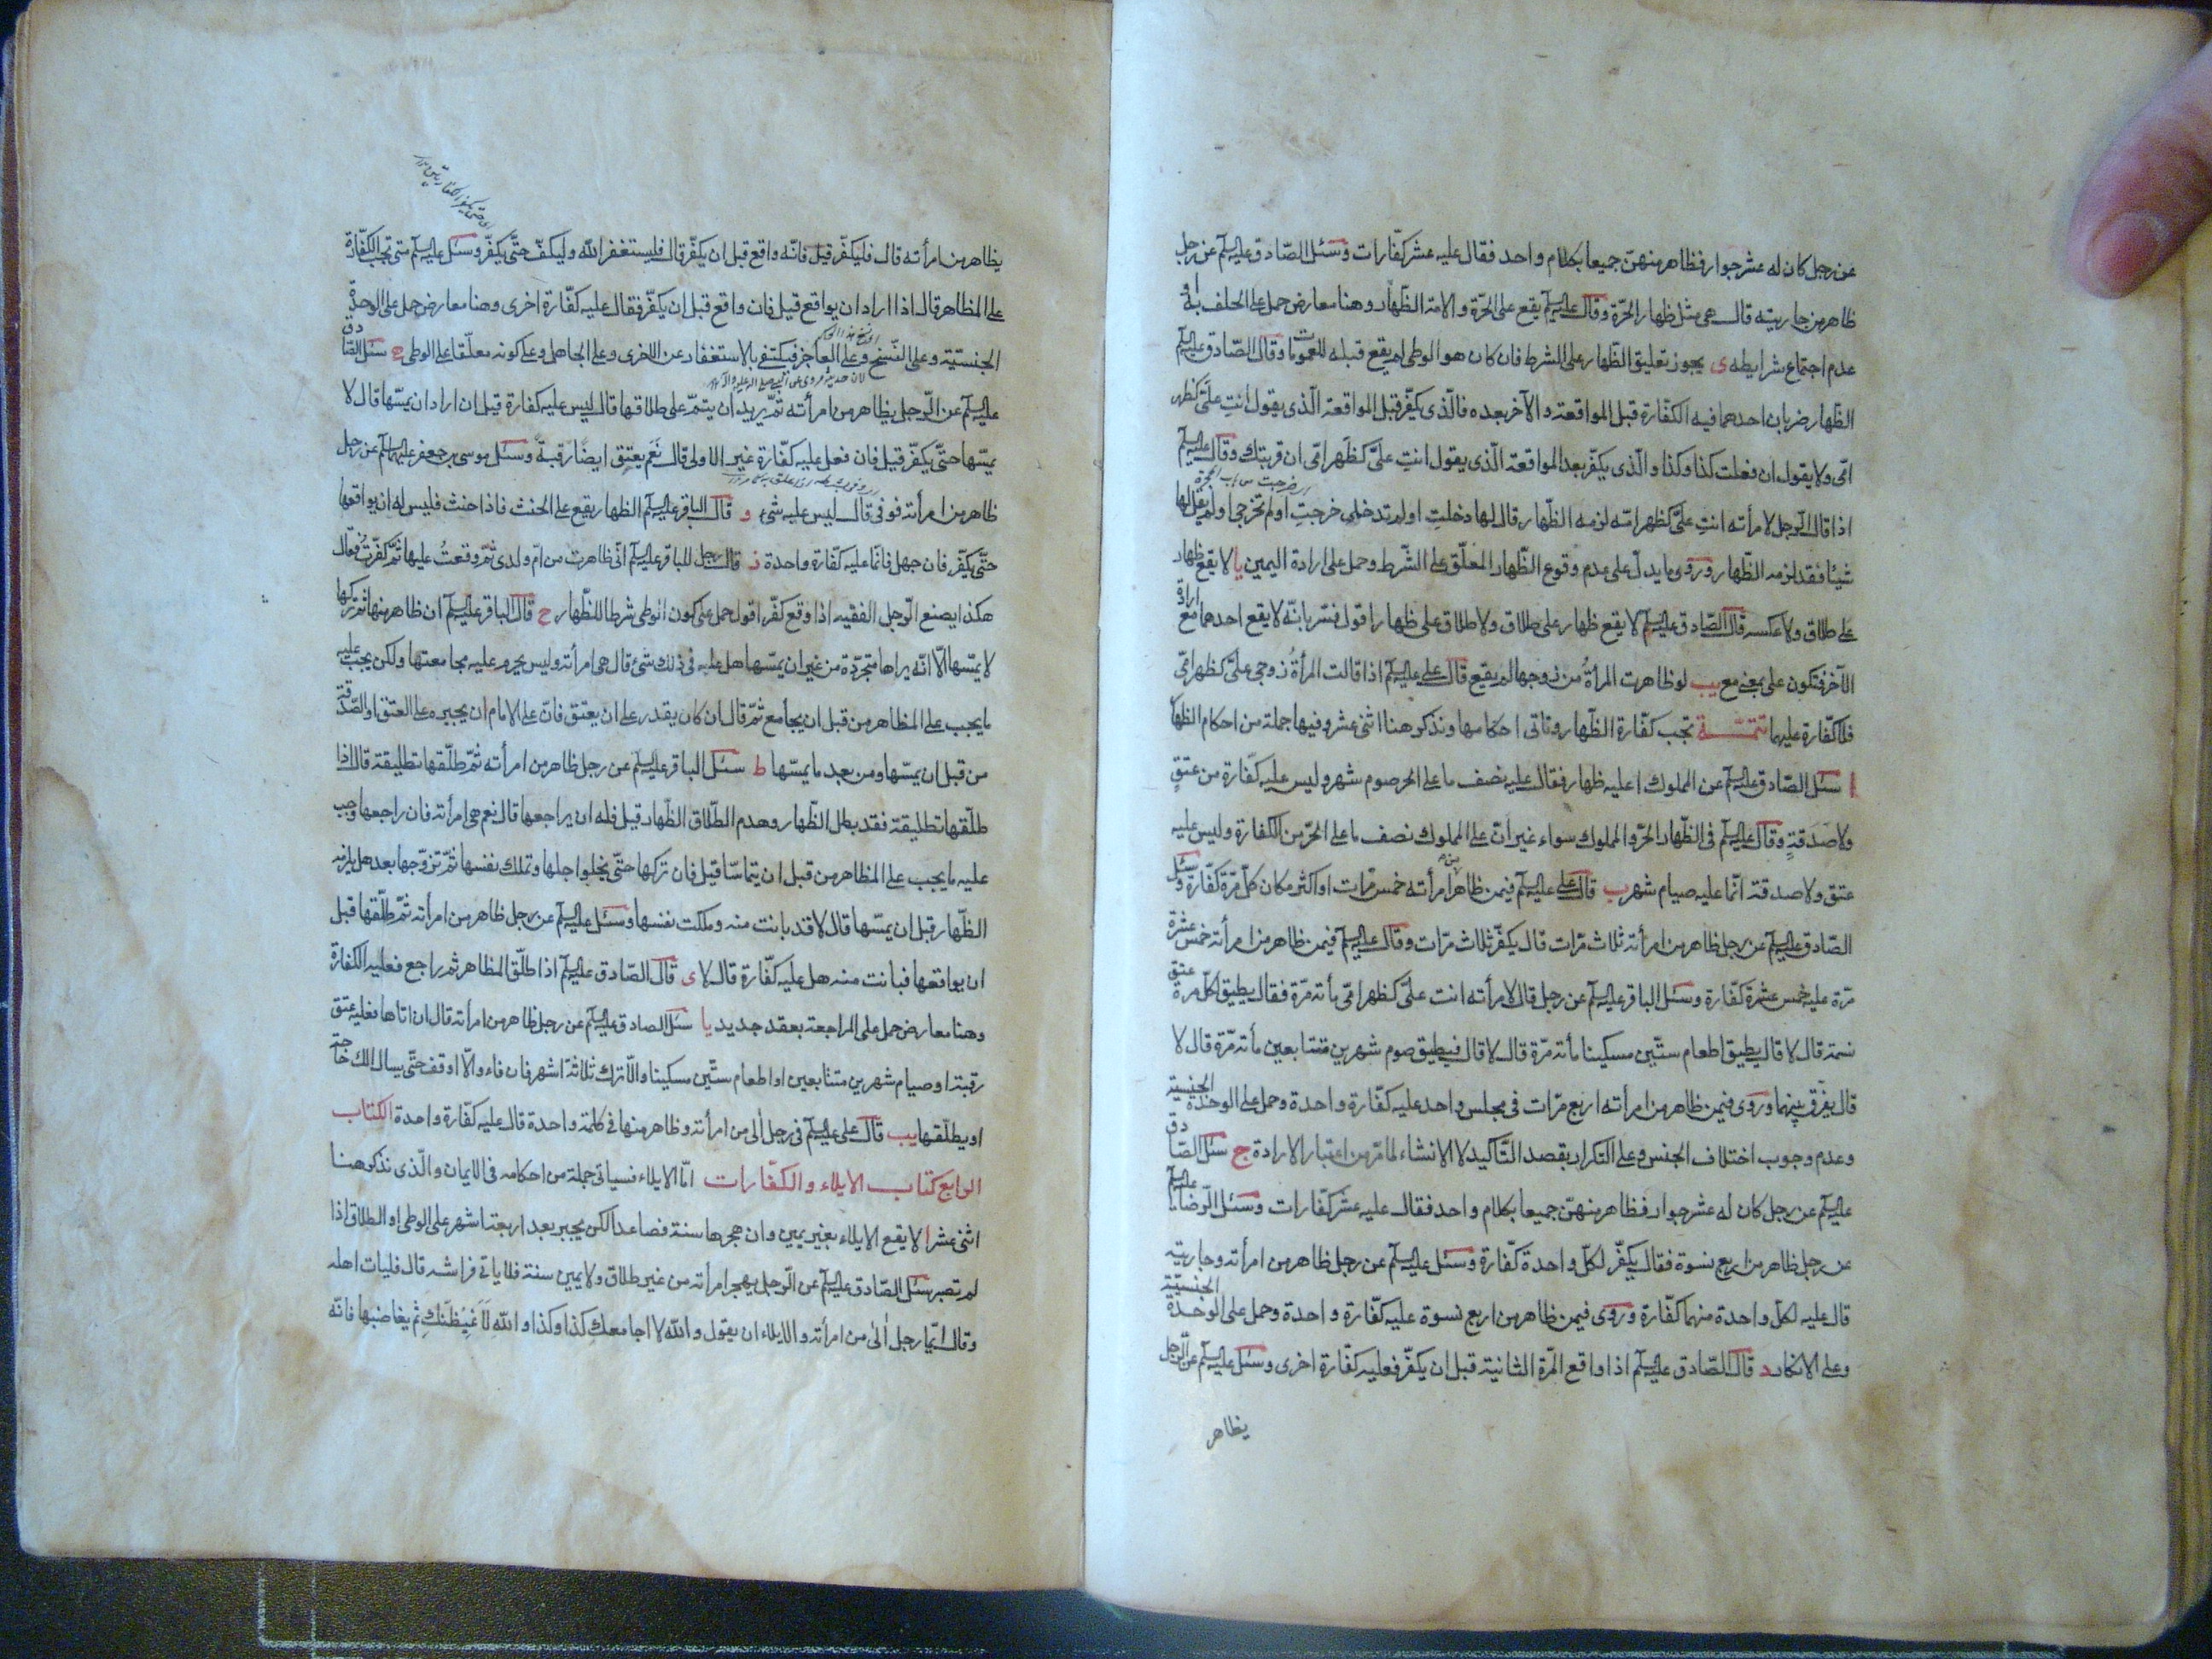 عن رجل كان له عشر جوار فظاهر منهنّ جميعا بكلام واحد فقال عليه عشر كفّارات وسئل الصّادق عليه السلم عن رجل
ظاهر من جاريته قال هى مثل ظهار الحرّة وقال عليه السلم يقع على الحرّة والامة الظّهار وهنا معارض حمل على الحلف به او
عدم اجتماع شرايطه ى يجوز تعليق الظّهار على الشرط فان كان هو الوطى لم يقع قبله للعمومات وقال الصّادق عليه السلم
الظّهار ضربان احدهما فيه الكفّارة قبل المواقعة والآخر بعده فالّذى يكفّر قبل المواقعة الّذى يقول انتِ علىّ كظهر
امّى ولا يقول ان فعلت كذا وكذا والّذى يكفّر بعد المواقعة الّذى يقول انتِ علىّ كظهر امّى ان قربتك وقال عليه السلم
اذا قال الرّجل لامرأته انتِ علىّ كظهر امّه لزمه الظّهار قال لها دخلتِ او لم تدخلى خرجتِ او لم تخرجى او لم يقل لها
شيئا فقد لزمه الظّهار وروى ما يدلّ على عدم وقوع الظّهار المعلّق على الشّرط وحمل على ارادة اليمين يا لا يقع ظهار
على طلاق ولا عكسه قال الصّادق عليه السلم لا يقع ظهار على طلاق ولا طلاق على ظهار اقول فسّر بانّه لا يقع احدهما مع ارادة
الآخر فتكون على بمعنى مع يب لو ظاهرت المرأةُ من زوجها لم يقع قال على عليه السلم اذا قالت المرأةُ زوجى علىّ كظهر امّى
فلا كفّارة عليهما تتمّة تجب كفّارة الظّهار وتاتى احكامها ونذكر هنا اثنى عشر وفيها جملة من احكام الظهار
ا سئل الصّادق عليه السلم عن المملوك اعليه ظهار فقال عليه نصف ما على الحر صوم شهر وليس عليه كفّارة من عتقٍ
ولا صَدَقةٍ وقال عليه السلم فى الظّهار الحرّ والمملوك سواء غير انّ على المملوك نصف ما على الحرّ من الكفارة وليس عليه
عتق ولا صدقة انّما عليه صيام شهر ب قال على عليه السلم فيمن ظاهر من امرأته خمس مرّات او اكثر مكان كلّ مرّة كفّارة وسئل
الصّادق عليه السلم عن رجل ظاهر من امرأته ثلاث مرّات قال يكفّر ثلاث مرّات وقال عليه السلم فيمن ظاهر من امرأته خمس عشرة
مرّة عليه خمس عشرة كفّارة وسئل الباقر عليه السلم عن رجل قال لامرأته انت علىّ كظهر امّى مأته مرّة فقال يطيق لكلّ مرة عتق
نسمة قال لا قال يطيق اطعام ستّين مسكينا مأته مرّة قال لا قال فيطيق صوم شهرين متتابعين مأته مرّة قال لا
قال يفرّق بينهما وروى فيمن ظاهر من امرأته اربع مرّات فى مجلس واحد عليه كفّارة واحدة وحمل على الوحدة الجنسية
وعدم وجوب اختلاف الجنس وعلى التكرار بقصد التّأكيد لا الانشاء لما مرّ من اعتبار الارادة ج سئل الصّادق
عليه السلم عن رجل كان له عشر جوار فظاهر منهنّ جميعا بكلام واحد فقال عليه عشر كفّارات وسئل الرّضا عليه السلم
عن رجل ظاهر من اربع نسوة فقال يكفّر لكلّ واحدة كفّارة وسئل عليه السلم عن رجل ظاهر من امرأته وجاريته
قال عليه لكل واحدة منهما كفّارة وروى فيمن ظاهر من اربع نسوة عليه كفّارة واحدة وحمل على الوحدة الجنسيّة
وعلى الانكار د قال الصّادق عليه السلم اذا واقع المّرة الثانية قبل ان يكفّر فعليه كفّارة اخرى وسئل عليه السلم عن الرّجل
يظاهر
يظاهر من امرأته قال فليكفّر قيل فانّه واقع قبل ان يكفّر قال فليستغفر الله وليكفّ حتّى يكفّر وسئل عليه السلم متى تجب الكفّارة
على المظاهر قال اذا اراد ان يواقع قيل فان واقع قبل ان يكفّر فقال عليه كفّارة اخرى وهنا معارض حمل على الوحدة
الجنسيّة وعلى النّسخ وعلى العاجز فيكتفى بالاستغفار عن الاخرى وعلى الجاهل وعلى كونه معلّقا على الوطى ه سئل الصّادق
عليه السلم عن الرّجل يظاهر من امرأته ثمّ يريد ان يتمّ على طلاقها قال ليس عليه كفارة قيل ان اراد ان يمسّها قال لا
يمسّها حتّى يكفّر قيل فان فعل عليه كفّارة غير الاولى قال نَعَم يعتق ايضًا رقبةً وسئل موسى بن جعفر عليهما السلم عن رجل
ظاهر من امرأته فوفى قال ليس عليه شىء و قال الباقر عليه السلم الظهار يقع على الحنث فاذا حنث فليس له ان يواقعها
حتّى يكفّر فان جهل فانّما عليه كفّارة واحدة ز قال رجل للباقر عليه السلم انّى ظاهرت من امّ ولدى ثمّ وقعتُ عليها ثمّ كفّرتُ فقال
هكذا يصنع الرّجل الفقيه اذا وقع كفّر اقول حمل على كون الوطى شرطا للظّهار ح قال الباقر عليه السلم ان ظاهر منها ثمّ تركها
لا يمسّها الّا انّه يراها متجرّدة من غير ان يمسّها هل عليه فى ذلك شىء قال هى امرأته وليس يحرم عليه مجامعتها ولكن يجب عليه
ما يجب على المظاهر من قبل ان يجامع ثمّ قال ان كان يقدر على ان يعتق فانّ على الامام ان يجبره على العتق او الصّدقة
من قبل ان يمسّها ومن بعد ما يمسّها ط سئل الباقر عليه السلم عن رجل ظاهر من امرأته ثمّ طلّقها تطليقة قال اذا
طلّقها تطليقة فقد بطل الظّهار وهدم الطّلاق الظّهار قيل فله ان يراجعها قال نعم هى امرأته فان راجعها وجب
عليه ما يجب على المظاهر من قبل ان يتماسّا قيل فان تركها حتّى يخلو اجلها وتملك نفسها ثمّ تزوّجها بعد هل يلزمه
الظّهار قبل ان يمسّها قال لا قد بانت منه وملكت نفسها وسئل عليه السلم عن رجل ظاهر من امرأته ثمّ طلّقها قبل
ان يواقعها فبانت منه هل عليه كفّارة قال لا ى قال الصّادق عليه السلم اذا طلّق المظاهر ثم راجع فعليه الكفارة
وهنا معارض حمل على المراجعة بعقد جديد يا سئل الصادق عليه السلم عن رجل ظاهر من امرأته قال ان اتاها فعليه عتق
رقبة او صيام شهرين متتابعين او اطعام ستّين مسكينا والّا ترك ثلاثة اشهر فان فاء والّا اوقف حتّى يسال الك حاجة
او يطلّقها يب قال على عليه السلم فى رجل الٰى من امرأته وظاهر منها فى كلمة واحدة قال عليه كفّارة واحدة الكتاب
الرابع كتاب الايلاء والكفّارات امّا الايلاء فسياتى جملة من احكامه فى الايمان والّذى نذكر هنا
اثنى عشر ا لا يقع الايلاء بغير يمين وان هجرها سنة فصاعدا لكن يجبر بعد اربعة اشهر على الوطى او الطلاق اذا
لم تصبر سئل الصّادق عليه السلم عن الرّجل يهجر امرأته من غير طلاق ولا يمين سنة فلا ياتى فراشه قال فليات اهله
وقال ايّما رجل الٰى من امرأته والايلاء ان يقول والله لا اجامعك كذا وكذا والله لَاَغيظنّكِ ثم يغاضبها فانّه